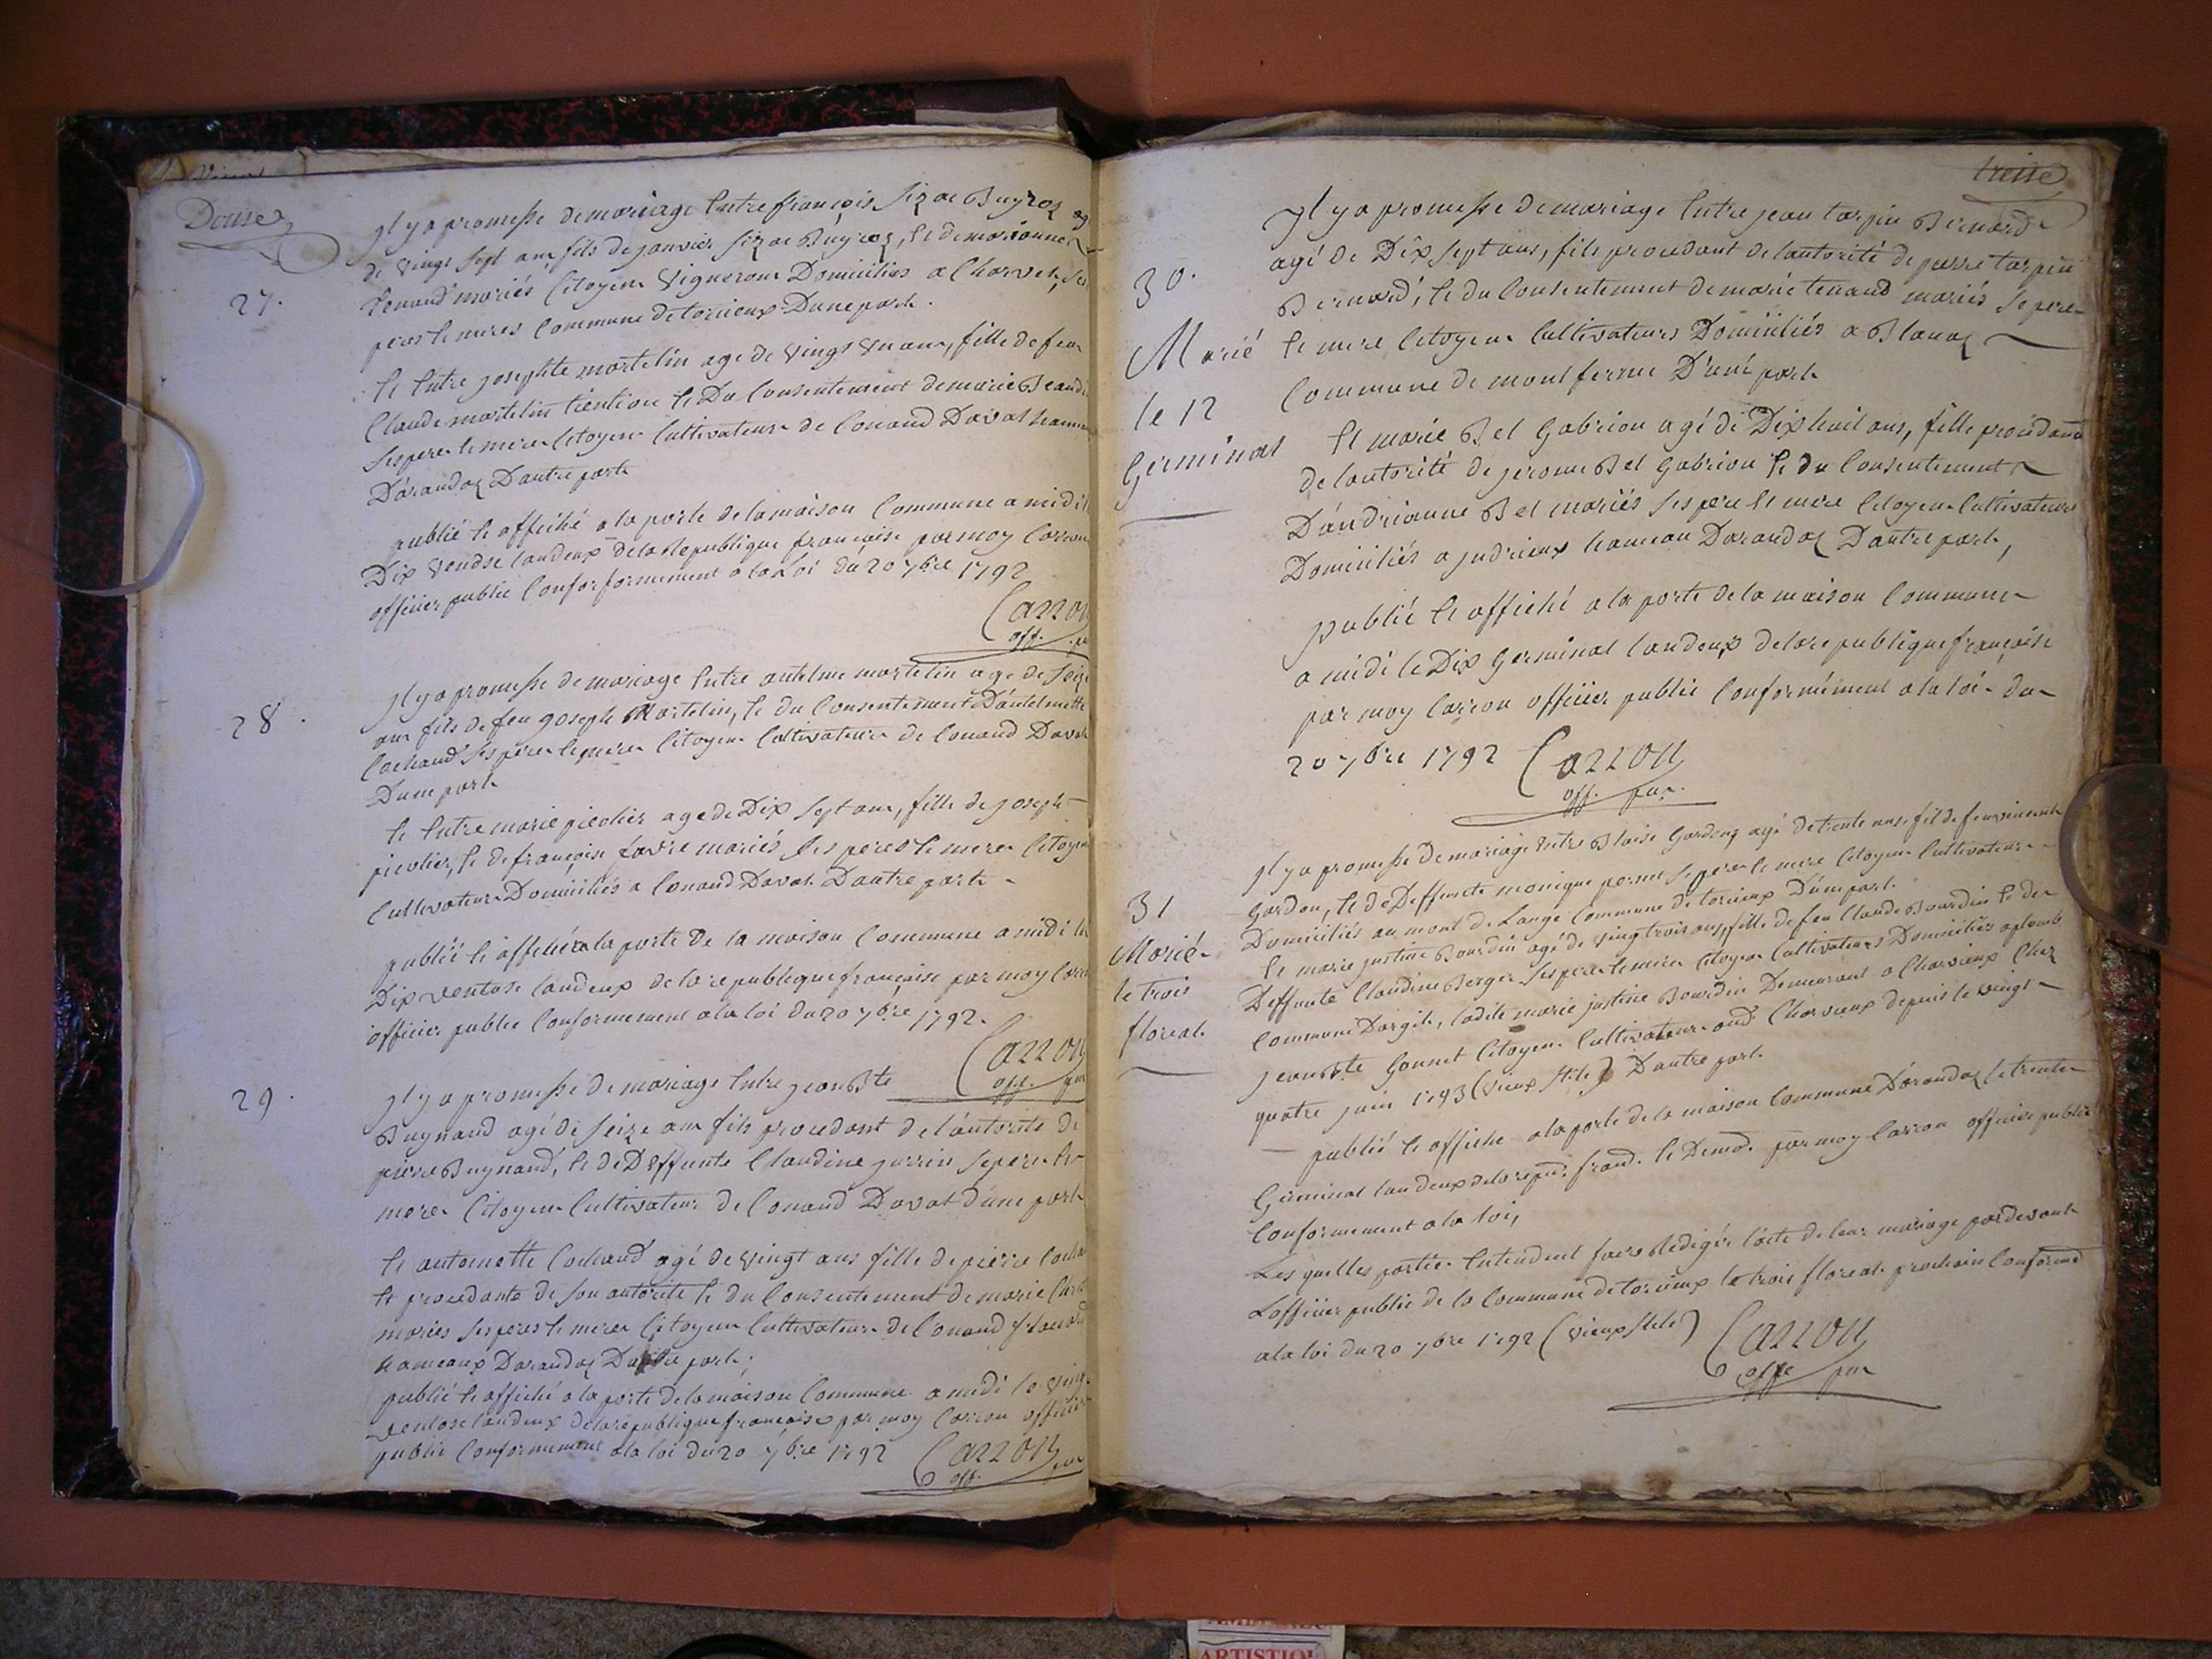 Douse
27.
Il y a promesse de mariage Entre françois Sizac Buyroz
de vingt sept ans fils de janvier Sizac Buyroz, Et de marianne
tenand mariés Citoyens vignerons Domiciliés a Charvet, ses
peres Et meres Commune de torcieux Dune part.
Et Entre josephte martelin age de vingt un ans, fille de feu
Claude martelin Et Du Consentement de marie
ses pere Et mere Citoyens Cultivateurs de Conand Davat hameau
D'arandaz Dautre part
publié Et affiché a la porte de la maison Commune a midi le
Dix vendse landeux de la Republique françoise par moy Carron
officier public Conforformement a la Loi du 20 7bre 1792
Carron
off. pu
28.
Il y a promesse de mariage Entre antelme martelin age de seize
ans fils de feu joseph Martelin, Et du Consentement D'antelmette
Cochand ses pere Et mere Citoyens Cultivateurs de Conand Davat
Dune part
Et Entre marie picolier age de Dix sept ans, fille de joseph
picolier, Et de françoise favre mariés, ses peres Et meres Citoyens
Cultivateurs Domiciliés a Conand Davat Dautre part
publié Et affiché a la porte De la maison Commune a midi le
Dix ventose landeux de la republique françoise par moy Carron
officier public Conformement a la loi du 20 7bre 1792.
Carron
off. pu
29.
Il y a promesse de mariage Entre jean Bte
Buynand agé de seize ans fils procedant de l'autorité de
pierre Buynand, Et de Deffunte Claudine ses pere Et
mere Citoyens Cultivateurs de Conand Davat d'une part
Et antoinette Cochand agé de vingt ans fille de pierre Cochand
Et procedante de son autorité Et du Consentement de marie
mariés ses peres Et meres Citoyens Cultivateurs de Conand
hameaux Darandaz Dautre part;
publié Et affiché a la porte de la maison Commune a midi le vingt
ventose landeux de la republique françoise par moy Carron officier
public Conformement a la loi du 20 7bre 1792
Carron
off. pu
treise
30.
Marié
le 12
Germinal
Il y a promesse de mariage Entre jean tarpin Bernard
agé de Dix sept ans, fils procedant de lautorité de pierre tarpin
Bernard, Et du Consentement de marie tenand mariés se pere
Et mere Citoyens Cultivateurs Domiciliés a Blanaz
Commune de montferme D'une part
Et marie Bel Gabrion agé de Dix huit ans, fille procedant
de lautorité de jerome Bel Gabrion Et du Consentement
D'andrianne Bel mariés ses pere Et mere Citoyens Cultivateurs
Domiciliés a judrieux hameau Darandaz Dautre part,
publié Et affiché a la porte de la maison Commune
a midi le Dix Germinal landeux de la republique françoise
par moy Carron officier public Conformément a la loi du
20 7bre 1792 Carron
off. pu.
31
Marié
le trois
floreal.
Il y a promesse De mariage Entre Blaise Gardon agé de trente ans fils de feu vincent
Gardon, Et de Deffuncte monique pernet ses pere Et mere Citoyens Cultivateurs
Domiciliés au mont de Lange Commune de torcieux D'une part.
Et marie justine Bourdin agé de vingtrois ans, fille de feu Claude Bourdin Et de
Deffunte Claudine Berger ses pere Et mere Citoyens Cultivateurs Domiciliés a plomb
Commune Dargile, ladite marie justine Bourdin Demeurant a Charvieux Chez
jean Bte Gonnet Citoyen Cultivateur aud Charvieux depuis le vingt
quatre juin 1793 (vieux stile) Dautre part.
publié Et affiche a la porte de la maison Commune D'arandaz le trente
Germinal landeux de la repu. frans. par moy Carron officier public
Conformement a la loi,
Les quelles parties Entendent faire Redigér lacte de leur mariage pardevant
Lofficier public de la Commune de torcieux le trois floreal prochain Conforme
a la loi du 20 7bre 1792 (vieux stile) Carron
offe pu